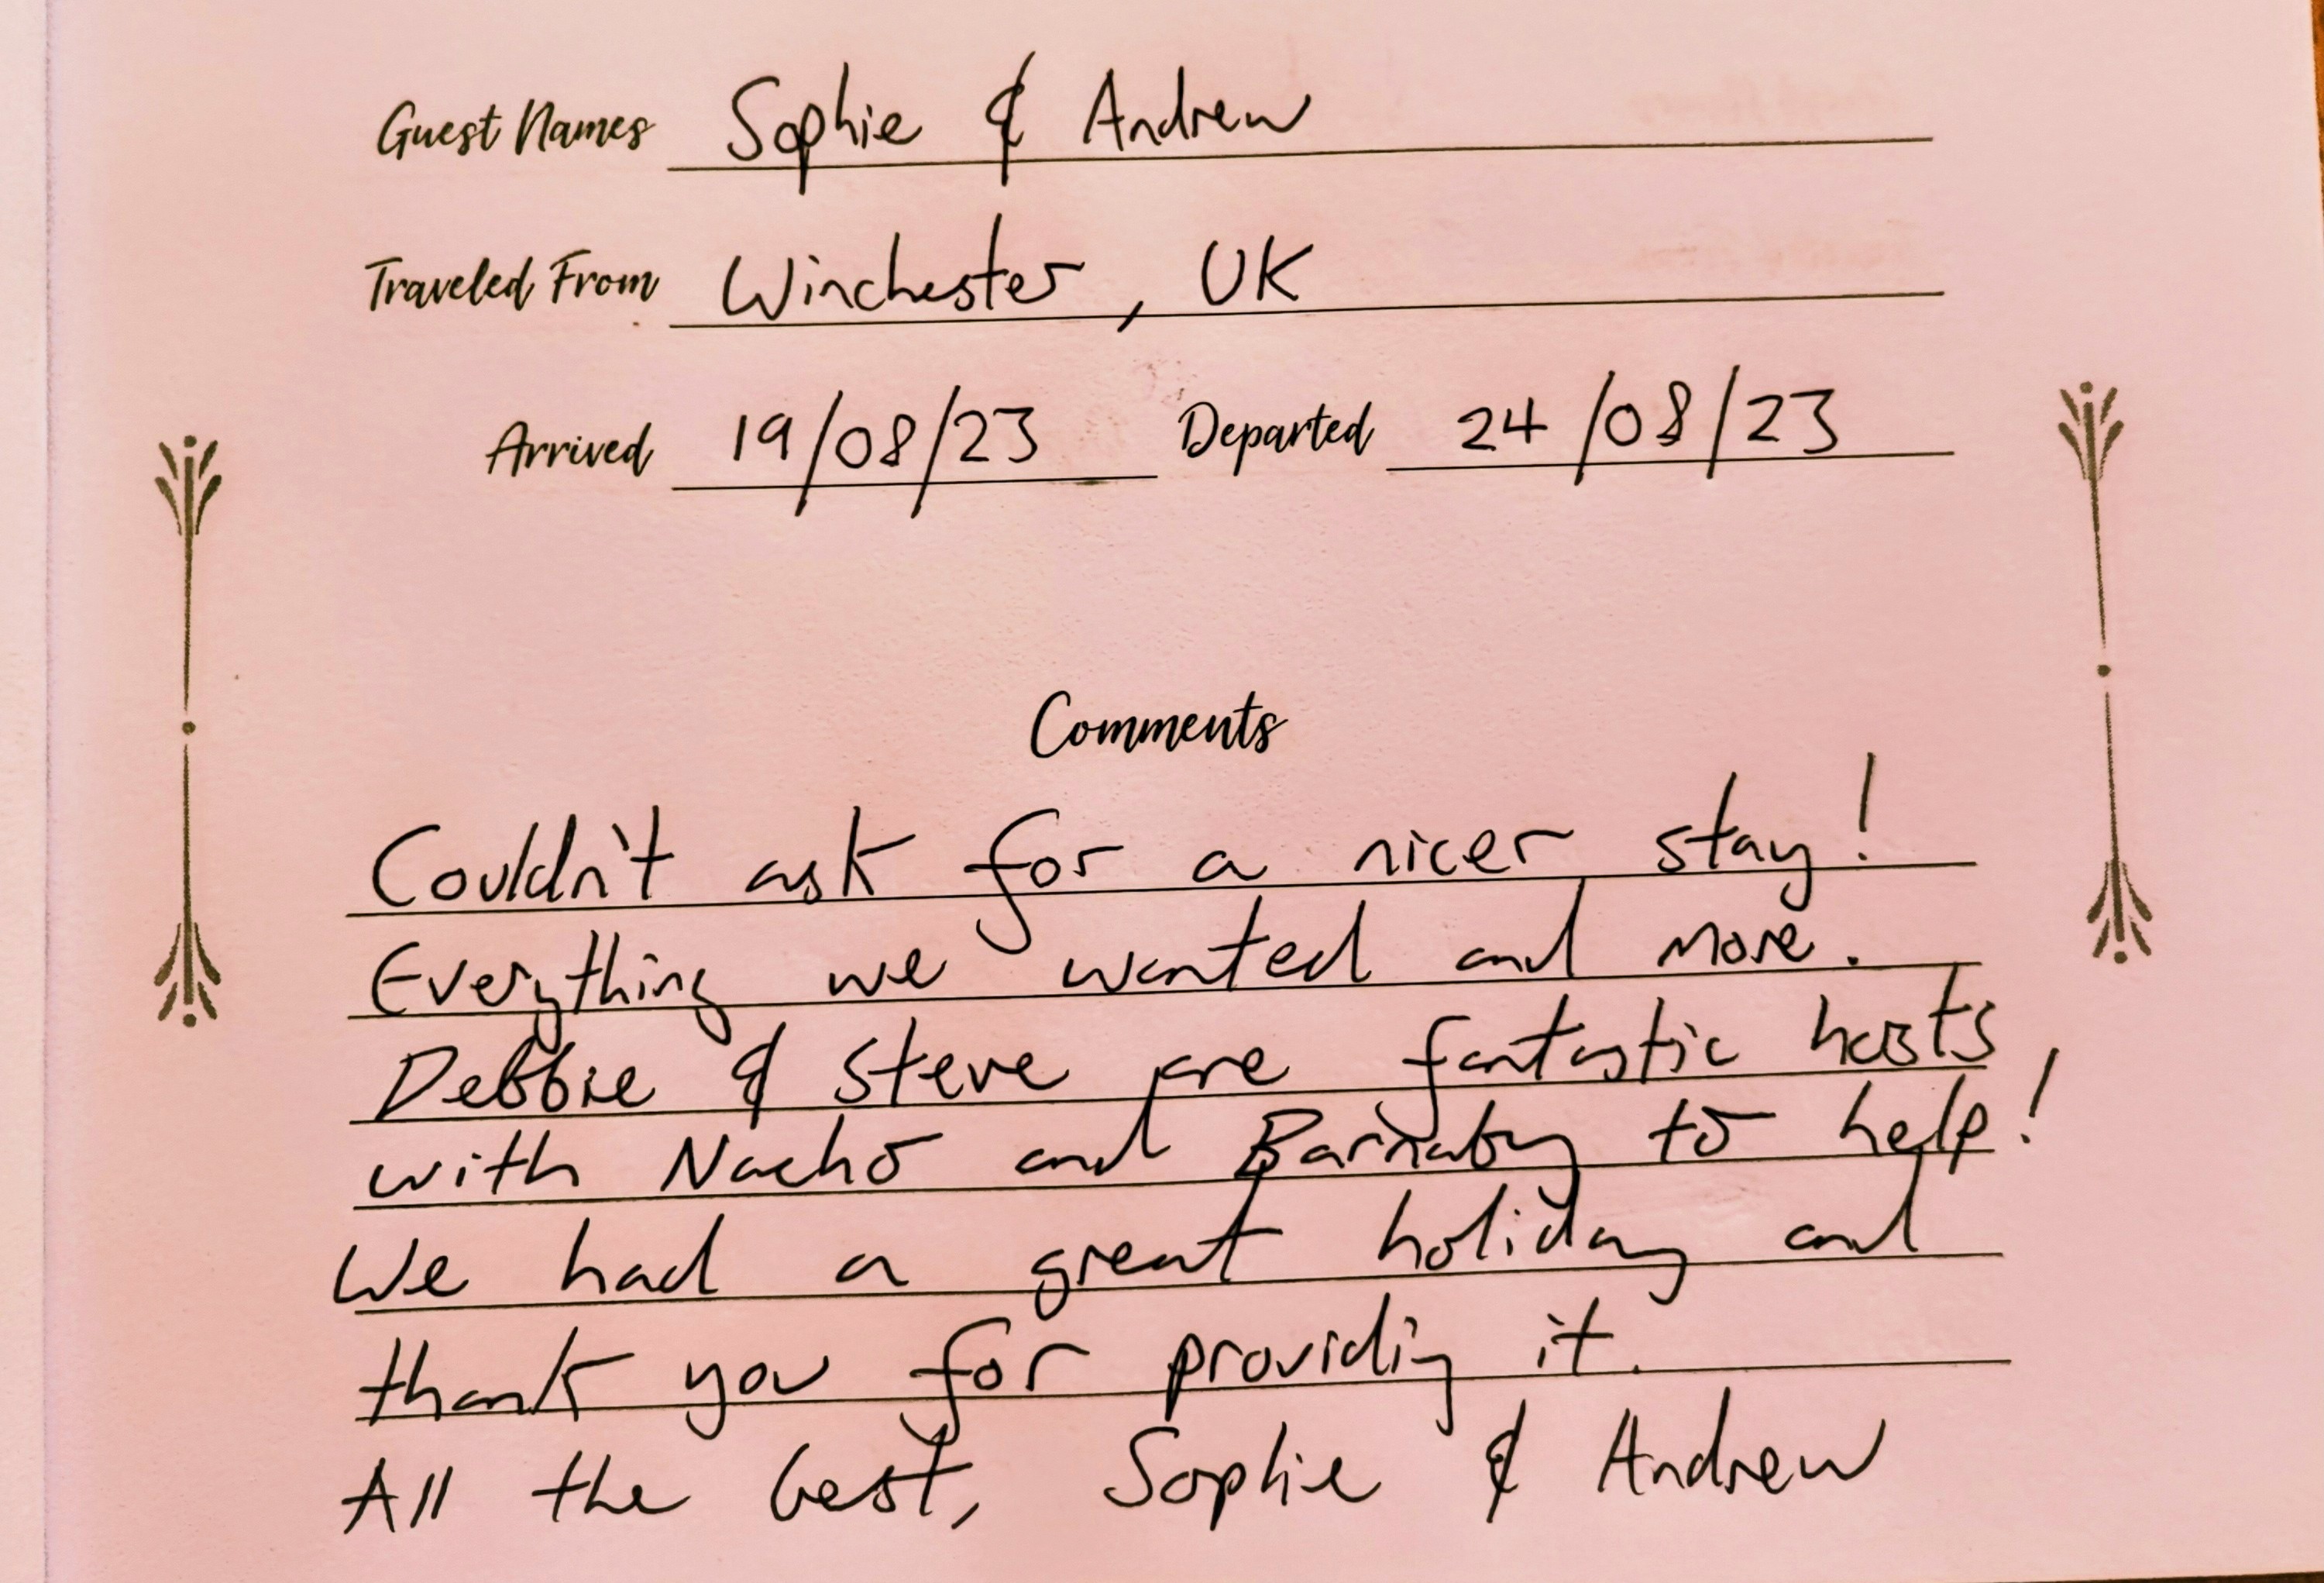 Guest Names Sophie & Andrew
Traveled From Winchester, UK
Arrived 19/08/23 Departed 24/08/23
Comments
Couldn't ask for a nicer stay!
Everything we wanted and more.
Debbie & Steve are fantastic hosts
with Nacho and Barnaby to help!
We had a great holiday and
thank you for providing it.
All the best, Sophie & Andrew